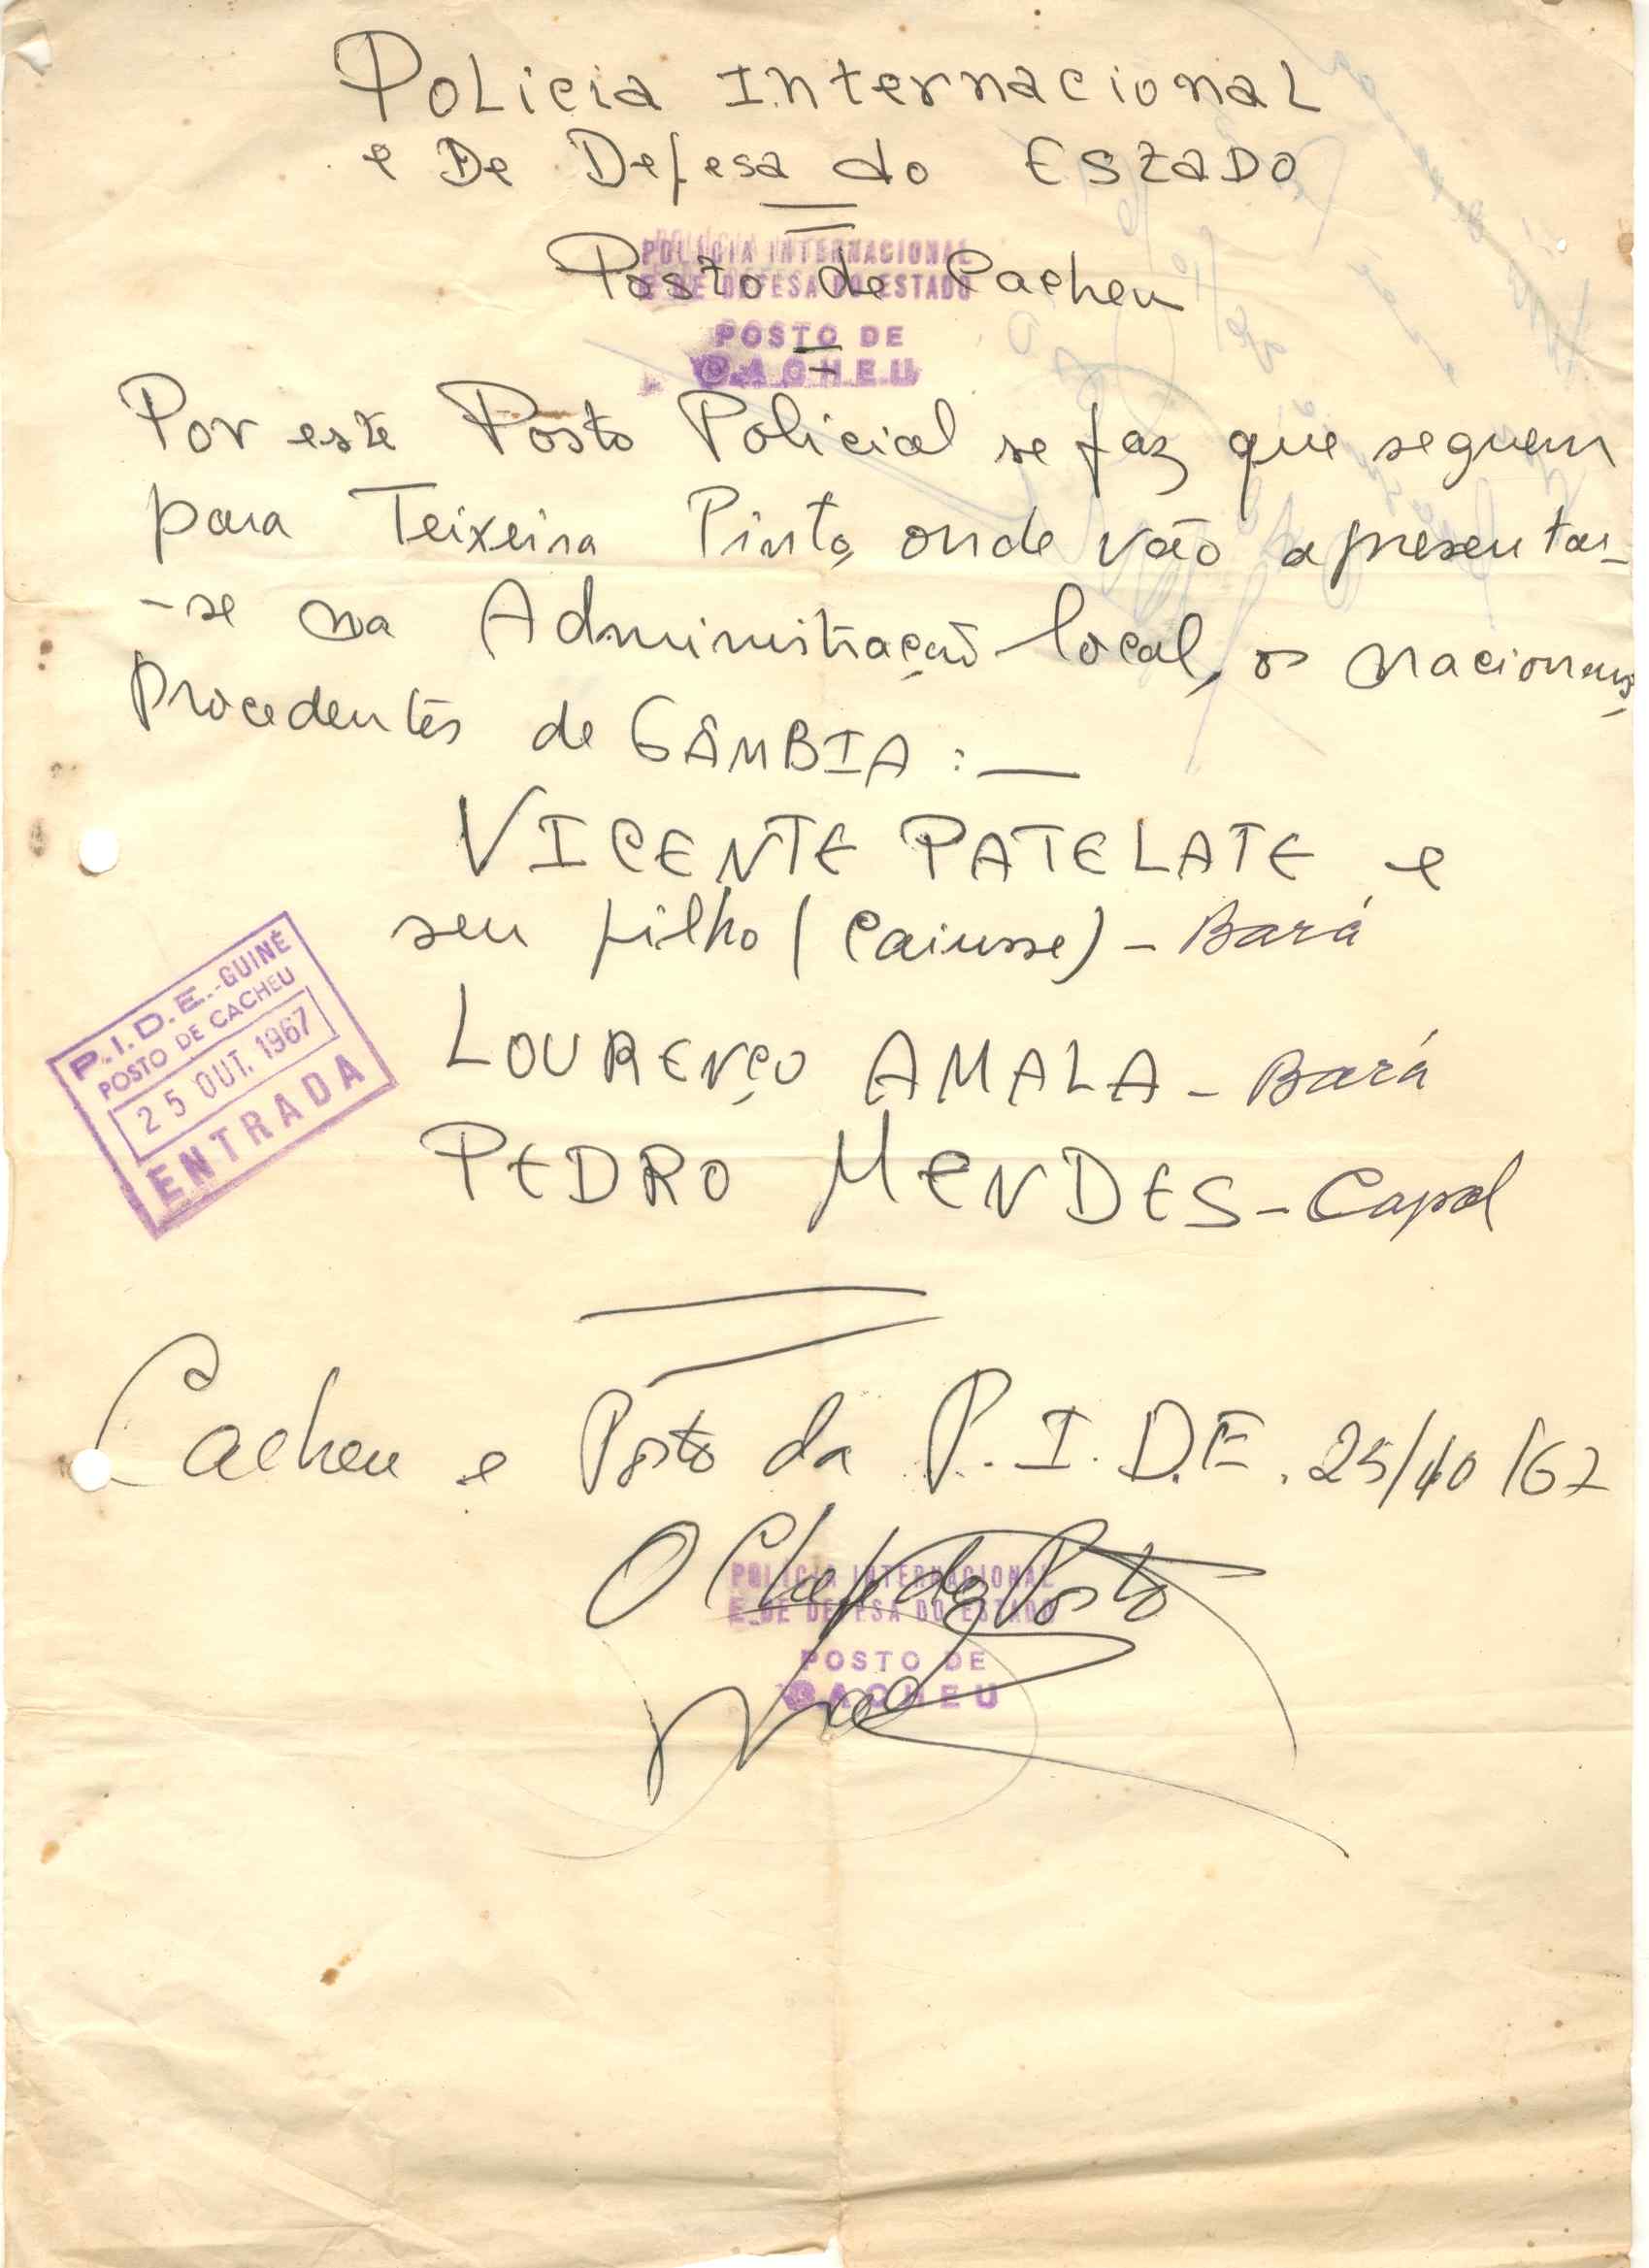 Policia Internacional
e De Defesa do ESTADO
POLICIA INTERNACIONAL
E DE DEFESA DO ESTADO
Posto de Cacheu
POSTO DE
CACHEU
Por este Posto Policial se faz que seguem
para Teixeira Pinto, onde vão apresentar-
-se na Administração local, os nacionais,
procedentes de GÂMBIA :—
VICENTE PATELATE e
seu filho (Caiusse) - Bará
LOURENÇO AMALA - Bará
PEDRO MENDES - Capol
P.I.D.E.-GUINÉ
POSTO DE CACHEU
25 OUT. 1967
ENTRADA
Cacheu e Posto da P.I.D.E. 25/10/67
O Chefe do Posto
POLICIA INTERNACIONAL
E DE DEFESA DO ESTADO
POSTO DE
CACHEU